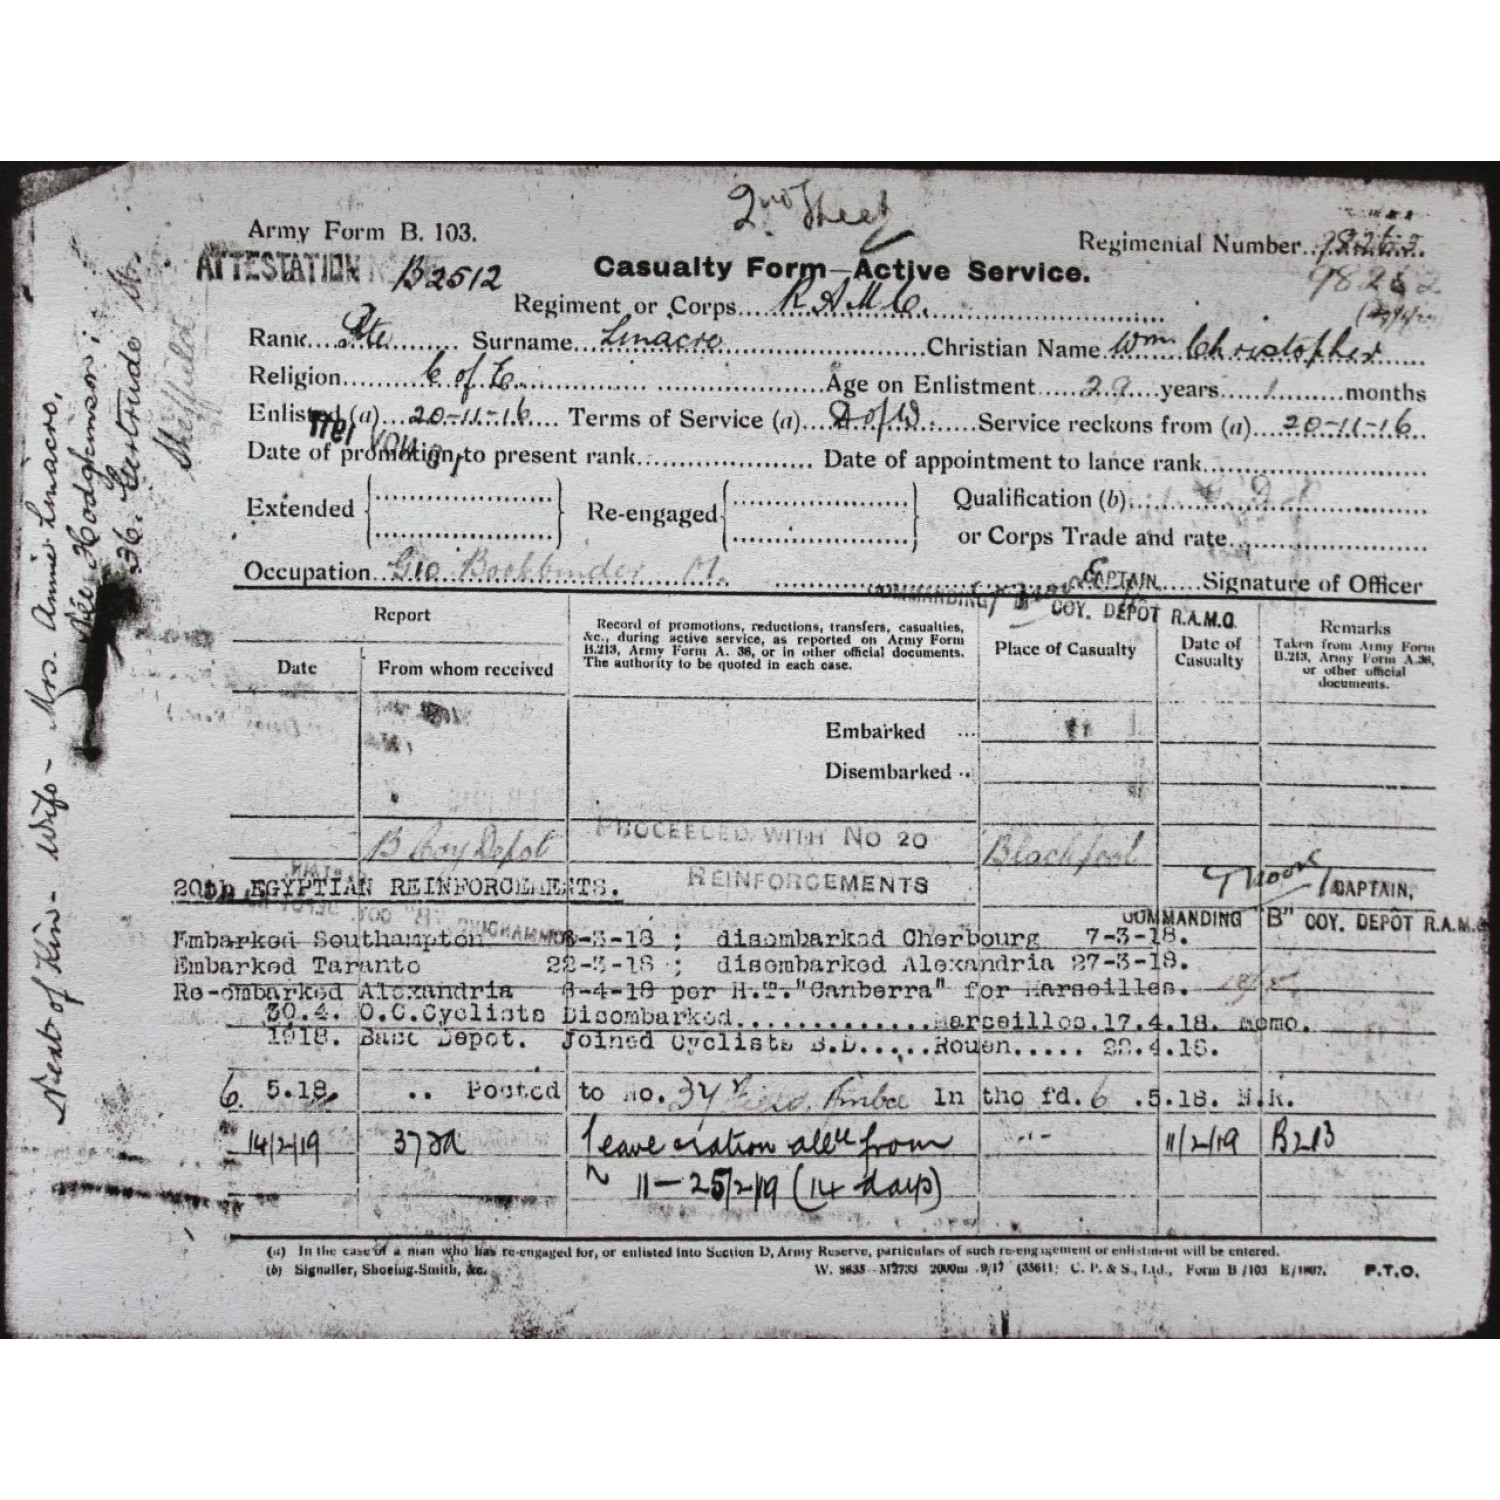 2nd Sheet
Army Form B. 103.
Regimental Number
98262
ATTESTATION B2512
Casualty Form—Active Service.
Regiment or Corps R.A.M.C.
Rank Pte Surname Linacre Christian Name Wm Christopher
Religion C of E Age on Enlistment 29 years 1 months
Enlisted (a) 20-11-16 Terms of Service (a) D of W Service reckons from (a) 20-11-16
Date of promotion to present rank Date of appointment to lance rank
Extended Re-engaged Qualification (b)
or Corps Trade and rate
Occupation Bookbinder Signature of Officer
CAPTAIN
COMMANDING "B" COY. DEPÔT R.A.M.C.
Report
Date From whom received
Record of promotions, reductions, transfers, casualties, &c., during active service, as reported on Army Form B.213, Army Form A. 36, or in other official documents. The authority to be quoted in each case.
Place of Casualty
Date of Casualty
Remarks
Taken from Army Form B.213, Army Form A.36, or other official documents.
Embarked ...
Disembarked ..
B Coy Depot PROCEEDED WITH No 20 Blackpool
REINFORCEMENTS
CAPTAIN,
20th EGYPTIAN REINFORCEMENTS.
COMMANDING "B" COY. DEPÔT R.A.M.C.
Embarked Southampton 6-3-18 ; disembarked Cherbourg 7-3-18.
Embarked Taranto 22-3-18 ; disembarked Alexandria 27-3-18.
Re-embarked Alexandria 8-4-18 per H.T."Canberra" for Marseilles.
30.4. O.C.Cyclists Disembarked.............Marseilles.17.4.18. Memo.
1918. Base Depot. Joined Cyclists B.D.....Rouen..... 22.4.18.
6 5.18. .. Posted to no. 34 Field Ambce in the fd. 6 .5.18. N.R.
14/2/19 37 Fa Leave & ration allce from 11/2/19 B213
11 — 25/2/19 (14 days)
(a) In the case of a man who has re-engaged for, or enlisted into Section D, Army Reserve, particulars of such re-engagement or enlistment will be entered.
(b) Signaller, Shoeing-Smith, &c. W. 8635—M2733 2000m 9/17 (35611) C. P. & S., Ltd., Form B/103 E/1807. P.T.O.
Next of Kin - Wife - Mrs. Annie Linacre,
née Hodgkinson;
36. Gertrude St.
Sheffield